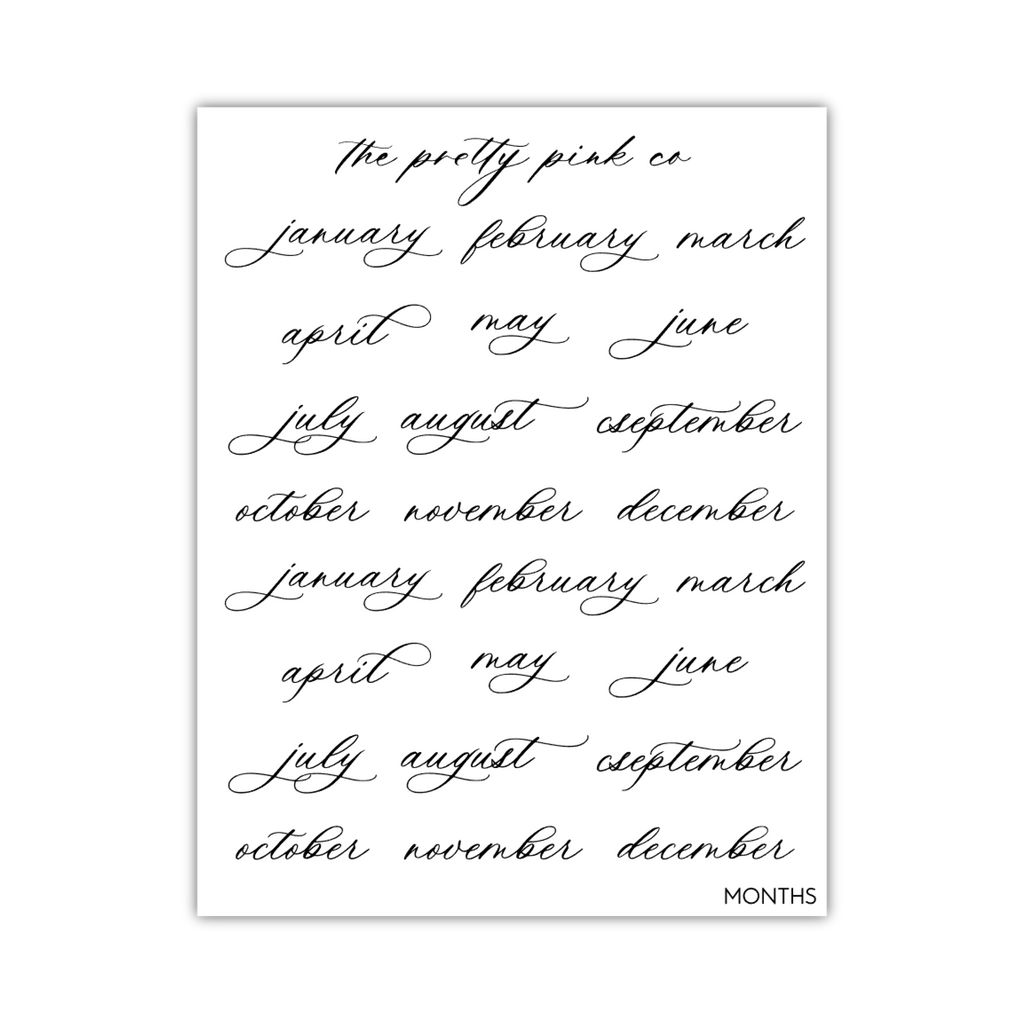 the pretty pink co
january february march
april may june
july august september
october november december
january february march
april may june
july august september
october november december
MONTHS